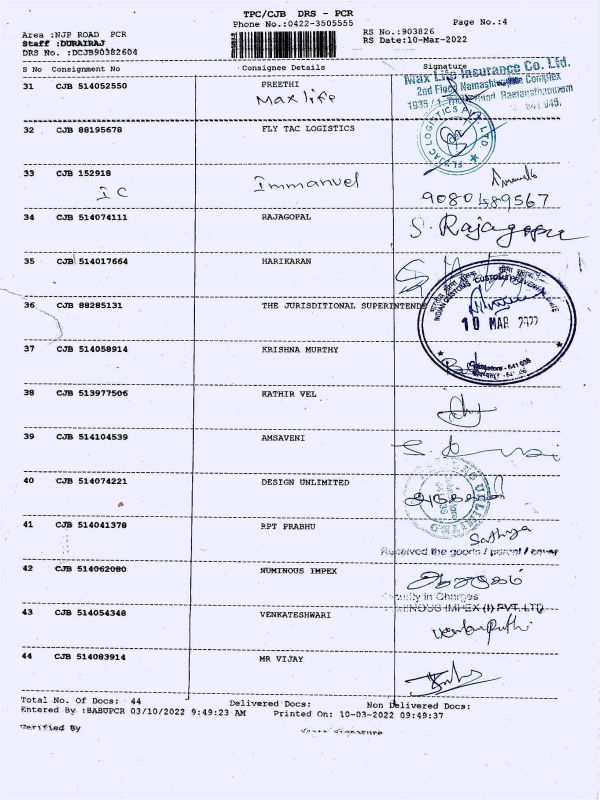 TPC/CJB DRS - PCR
Phone No.:0422-3505555 Page No.:4
Area :NJP ROAD PCR RS No.:903826
Staff :DURAIRAJ RS Date:10-Mar-2022
DRS No. :DCJB90382604
S No Consignment No Consignee Details Signature
31 CJB 514052550 PREETHI
Max life
Max Life Insurance Co. Ltd.
2nd Floor Complex
Ramanathapuram
32 CJB 88195678 FLY TAC LOGISTICS
33 CJB 152918 Immanuel
IC 9080489567
34 CJB 514074111 RAJAGOPAL S. Rajagopal
35 CJB 514017664 HARIKARAN
36 CJB 88285131 THE JURISDITIONAL SUPERINTENDE
10 MAR 2022
37 CJB 514058914 KRISHNA MURTHY
38 CJB 513977506 KATHIR VEL
39 CJB 514104539 AMSAVENI
40 CJB 514074221 DESIGN UNLIMITED
41 CJB 514041378 RPT PRABHU Sathya
Received the goods / parcel / cover
42 CJB 514062080 NUMINOUS IMPEX
Security in Charges
NUMENOUS IMPEX (I) PVT. LTD
43 CJB 514054348 VENKATESHWARI
44 CJB 514083914 MR VIJAY
Total No. Of Docs: 44 Delivered Docs: Non Delivered Docs:
Entered By :BABUPCR 03/10/2022 9:49:23 AM Printed On: 10-03-2022 09:49:37
Verified By